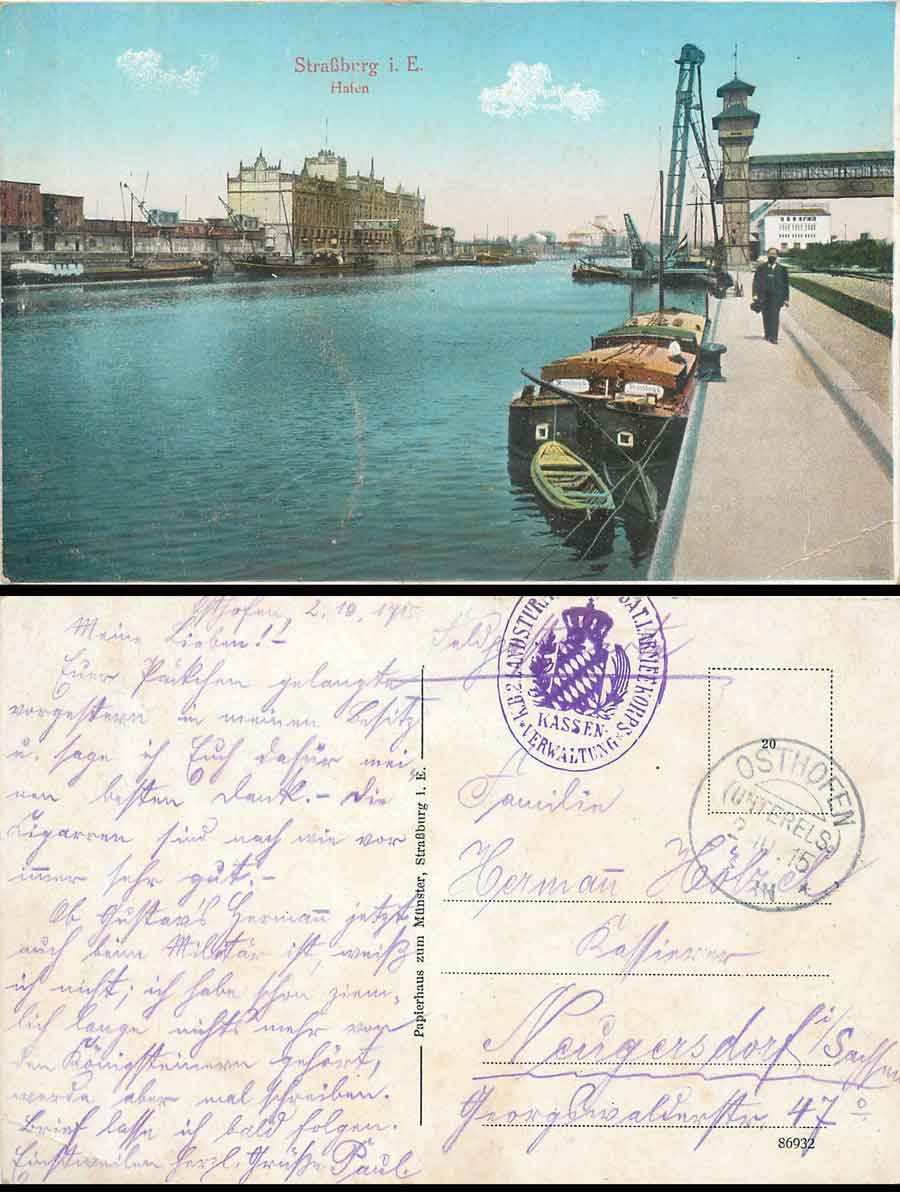 Straßburg i. E.
Hafen
Osthofen, 2. 10. 1915
Meine Lieben!! -
Euer Päckchen gelangte
vorgestern in meinen Besitz
u. sage ich Euch dafür mei,
nen besten Dank. - Die
Zigarren sind nach wie vor
immer sehr gut. -
Ob Gustav's Hermann jetzt
auch beim Militär ist, weiß
ich nicht; ich habe schon ziem,
lich lange nichts mehr von
den Königsteinern gehört,
werde aber mal schreiben.
Brief lasse ich bald folgen.
Einstweilen herzl. Grüße Paul.
Papierhaus zum Münster, Straßburg i. E.
K.B. LANDSTURM ARMEEKORPS
KASSEN-
VERWALTUNG
20
OSTHOFEN
(UNTERELS.)
2.10.15
Familie
Hermann Hölzel
Kassierer
Neugersdorf i/Sachsen
Georgswalderstr. 47
86932